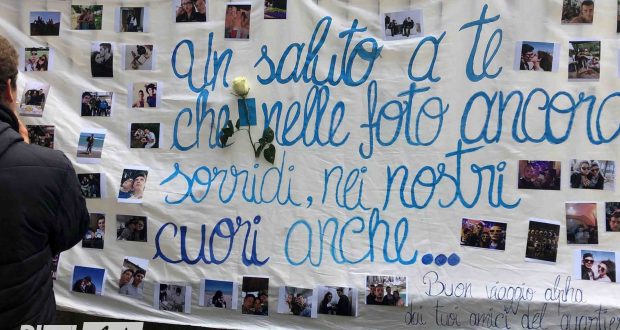 Un saluto a te
che nelle foto ancora
sorridi, nei nostri
cuori anche...
Buon viaggio alpha
dai tuoi amici del quartie